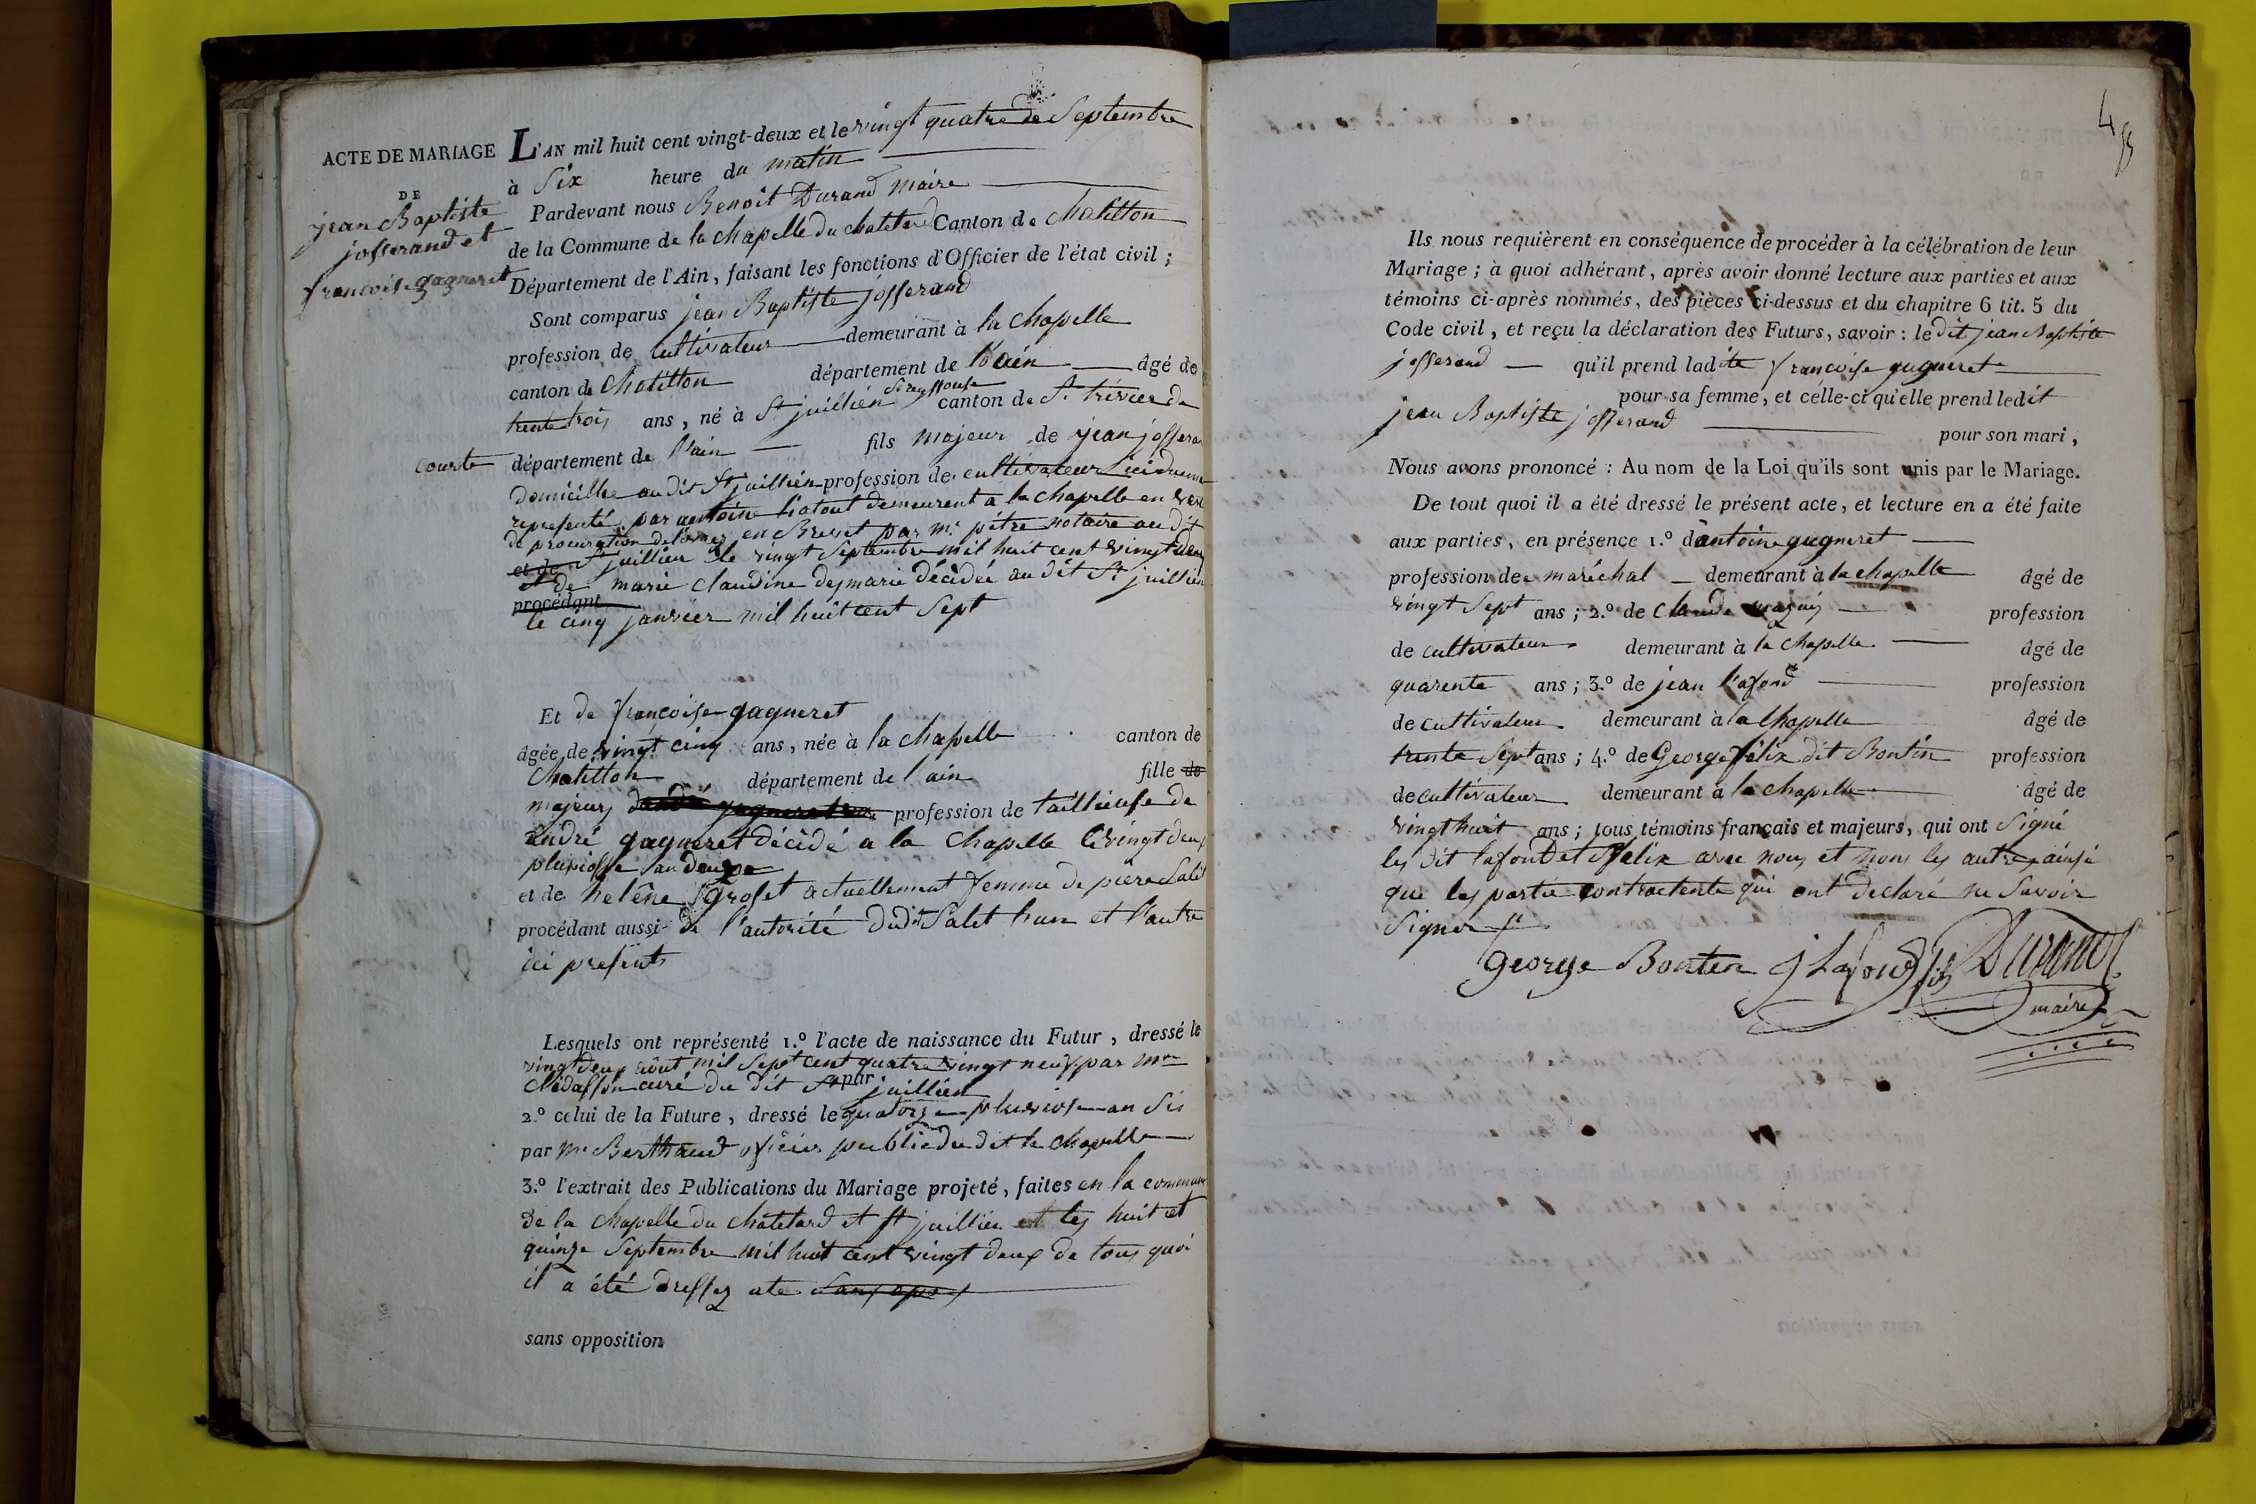 ACTE DE MARIAGE
DE
jean Baptiste
josserand et
francoise gagneret
L'AN mil huit cent vingt-deux et le vingt quatre de Septembre
à Six heure du matin
Pardevant nous Benoit Durand Maire
de la Commune de la chapelle du chatelard Canton de chatillon
Département de l'Ain, faisant les fonctions d'Officier de l'état civil ;
Sont comparus jean Baptiste josserand
profession de cultivateur demeurant à la chapelle
canton de Chatillon département de l'ain âgé de
trente trois ans, né à St juillien Sr reyssouse canton de St trivier de
courte département de l'ain fils majeur de jean josseran
domicillié au dit St juillien profession de cultivateur ici
representé par antoine demeurent a la chapelle en
de procuration en Brevet par Mr pètre notaire au dit
et de St juillien le vingt Septembre mil huit cent vingt deux
et de marie claudine desmarie décédée au dit St juillien
procédant
le cinq janvier mil huit cent Sept
Et de francoise gagneret
âgée de vingt cinq ans, née à la chapelle canton de
Chatillon département de l'ain fille de
majeur profession de taillieuse de
andré gagneret décédé a la Chapelle le vingt deux
pluviosse an
et de helêne Groset actuellement femme de piere Salet
procédant aussi de l'autorité dudit Salet l'un et l'autre
ici presents
Lesquels ont représenté 1.º l'acte de naissance du Futur, dressé le
vingt deux aôut mil Sept cent quatre vingt neuf par Mr
curé du dit St par juillien
2.º celui de la Future, dressé le quatorze pluviose an Six
par Mr Berthaud officier public du dit la chapelle
3.º l'extrait des Publications du Mariage projeté, faites en la commune
de la chapelle du châtelard et St juillien les huit et
quinze Septembre mil huit cent vingt deux de tous quoi
il a été dressez ate
sans opposition
Ils nous requièrent en conséquence de procéder à la célébration de leur
Mariage ; à quoi adhérant, après avoir donné lecture aux parties et aux
témoins ci-après nommés, des pièces ci-dessus et du chapitre 6 tit. 5 du
Code civil, et reçu la déclaration des Futurs, savoir : le dit jean Baptiste
josserand qu'il prend ladite francoise gagneret
pour sa femme, et celle-ci qu'elle prend ledit
jean Baptiste josserand
pour son mari,
Nous avons prononcé : Au nom de la Loi qu'ils sont unis par le Mariage.
De tout quoi il a été dressé le présent acte, et lecture en a été faite
aux parties, en présence 1.º d'antoine gagneret
profession de maréchal demeurant à la chapelle âgé de
vingt Sept ans ; 2.º de Claude profession
de cultivateur demeurant à la chapelle âgé de
quarente ans ; 3.º de jean lafond profession
de cultivateur demeurant à la chapelle âgé de
trente Sept ans ; 4.º de George félix dit Bontin profession
de cultivateur demeurant à la chapelle âgé de
vingt huit ans ; tous témoins français et majeurs, qui ont Signé
les dit lafond et felix avec nous et non les autres ainsi
que les partie contractente qui ont declaré ne Savoir
Signer
George Bonten j Lafond Durand
maire